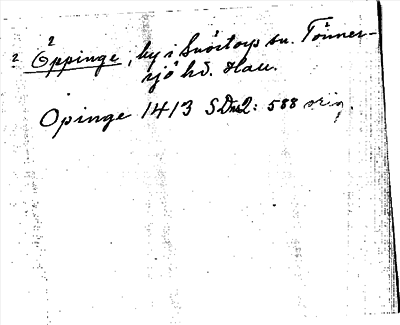 ? Öppinge, by i Snöstorp sn. Tönner-
sjö hd. Hall.
Opinge 1413 SDns2: 588 orig.